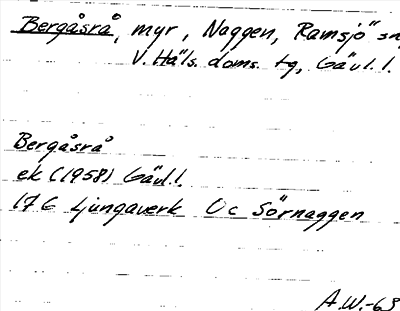 Bergåsrå, myr, Naggen, Ramsjö sn,
V. Häls. doms. tg, Gävl. l.
Bergåsrå
ek (1958) Gävl. l.
17G Ljungaverk Oc Sörnaggen
A.W.-63